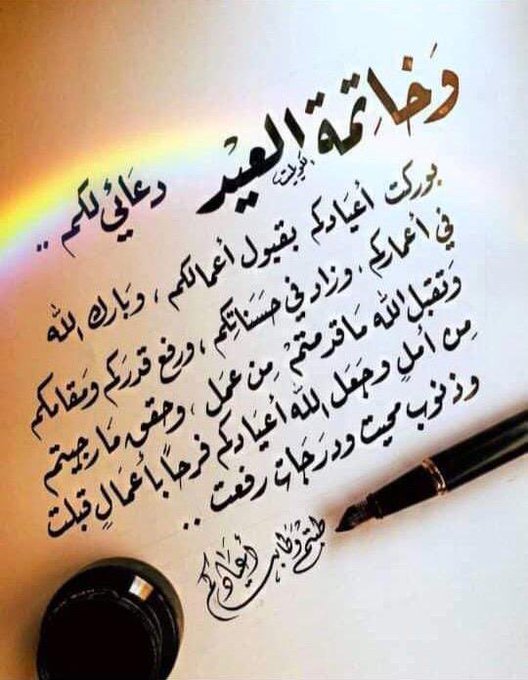 وَخاتِمة العيْد دعَائي لكم ..
بوركت أعيَادكم بقبول أعمالكم ، وبَارك الله
في أعماركم ، وزاد في حسَنَاتِكم ، ورفع قدرَكم ومقامكم
وَتقبل الله مَا قدمتمْ مِن عمَل ، وحقق مَا رجيتم
مِن أملٍ وجعَل الله أعيَادكم فرحاً بأعمَالٍ قبلت
وذنوب محيت ودرَجَات رفعت ..
طبتم وَطابت أعيَادكم